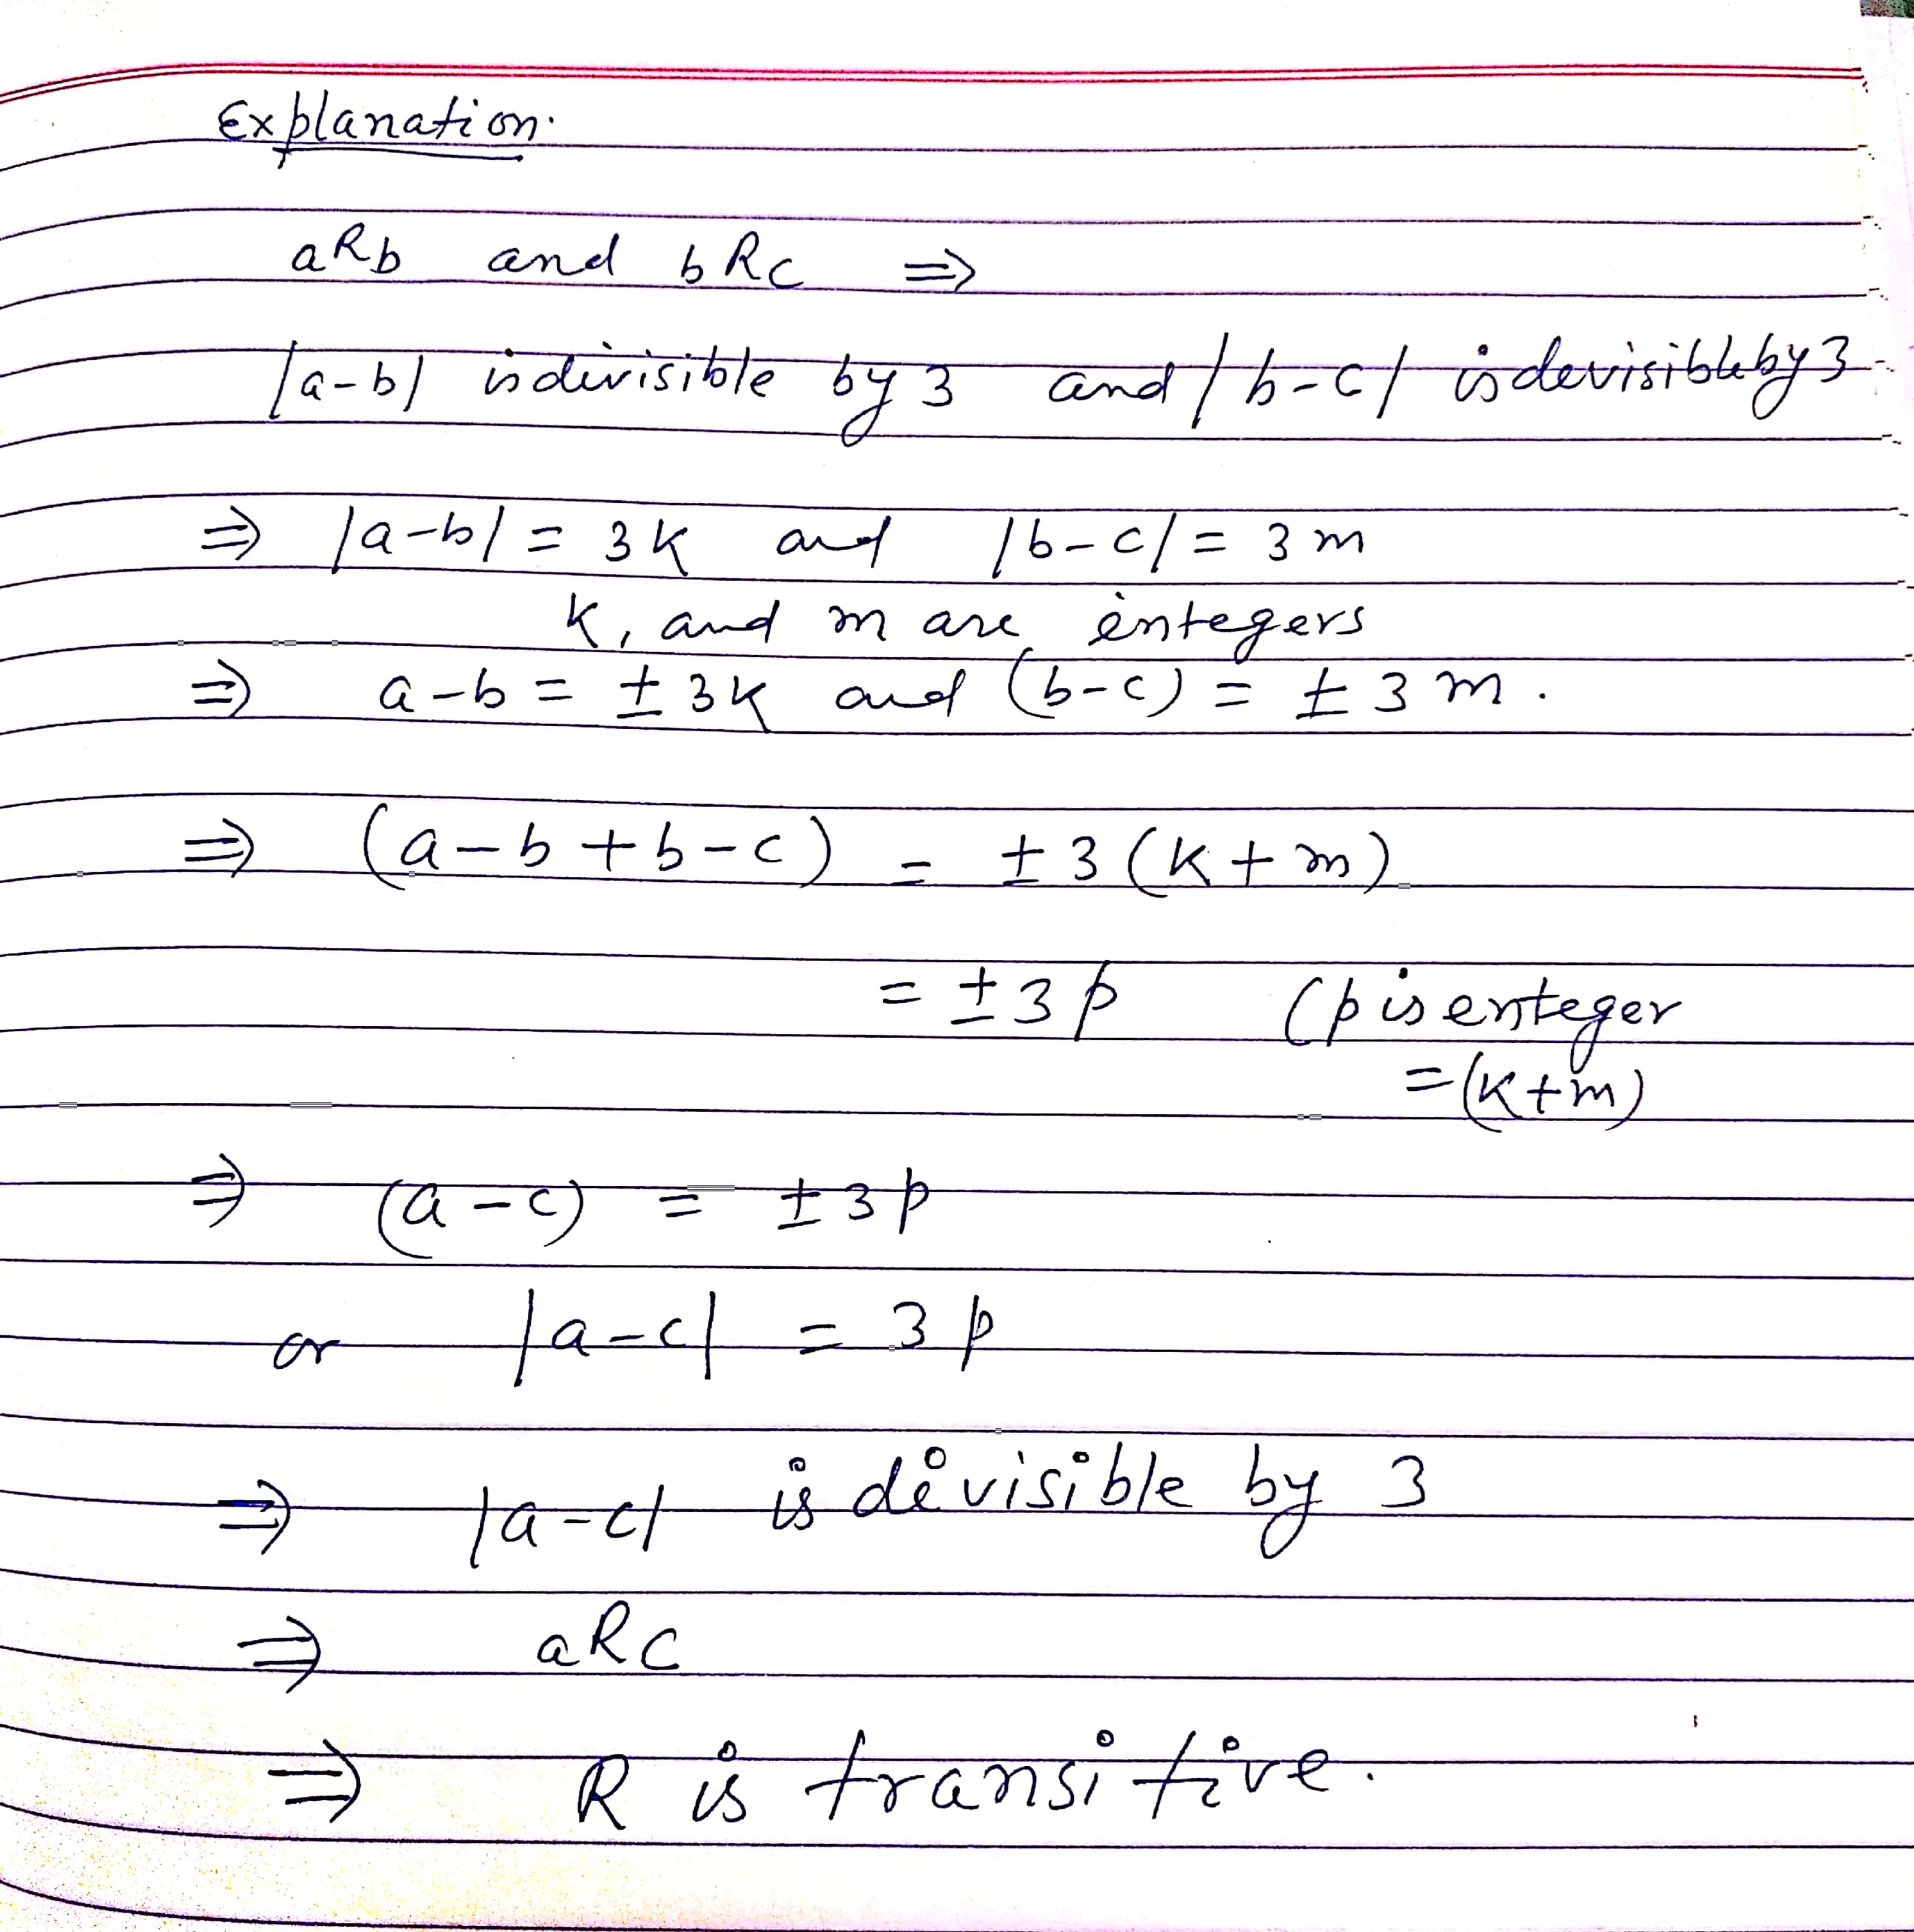 Explanation.
aRb and bRc ⇒
|a-b| is divisible by 3 and |b-c| is devisible by 3
⇒ |a-b| = 3k and |b-c| = 3m
k, and m are integers
⇒ a-b = ±3k and (b-c) = ±3m.
⇒ (a-b+b-c) = ±3(k+m)
= ±3p (p is enteger
=(k+m)
⇒ (a-c) = ±3p
or |a-c| = 3p
⇒ |a-c| is divisible by 3
⇒ aRc
⇒ R is transitive.